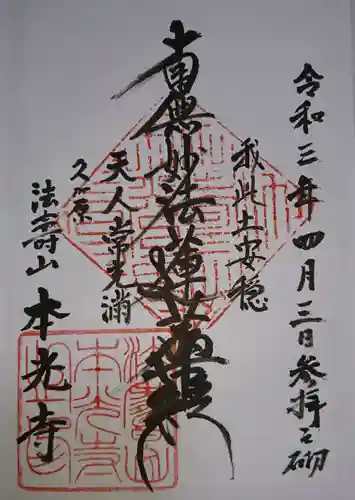 令和三年四月三日参拝之砌
我此土安穏
南無妙法蓮華経
天人常充満
久ヶ原
法壽山 本光寺